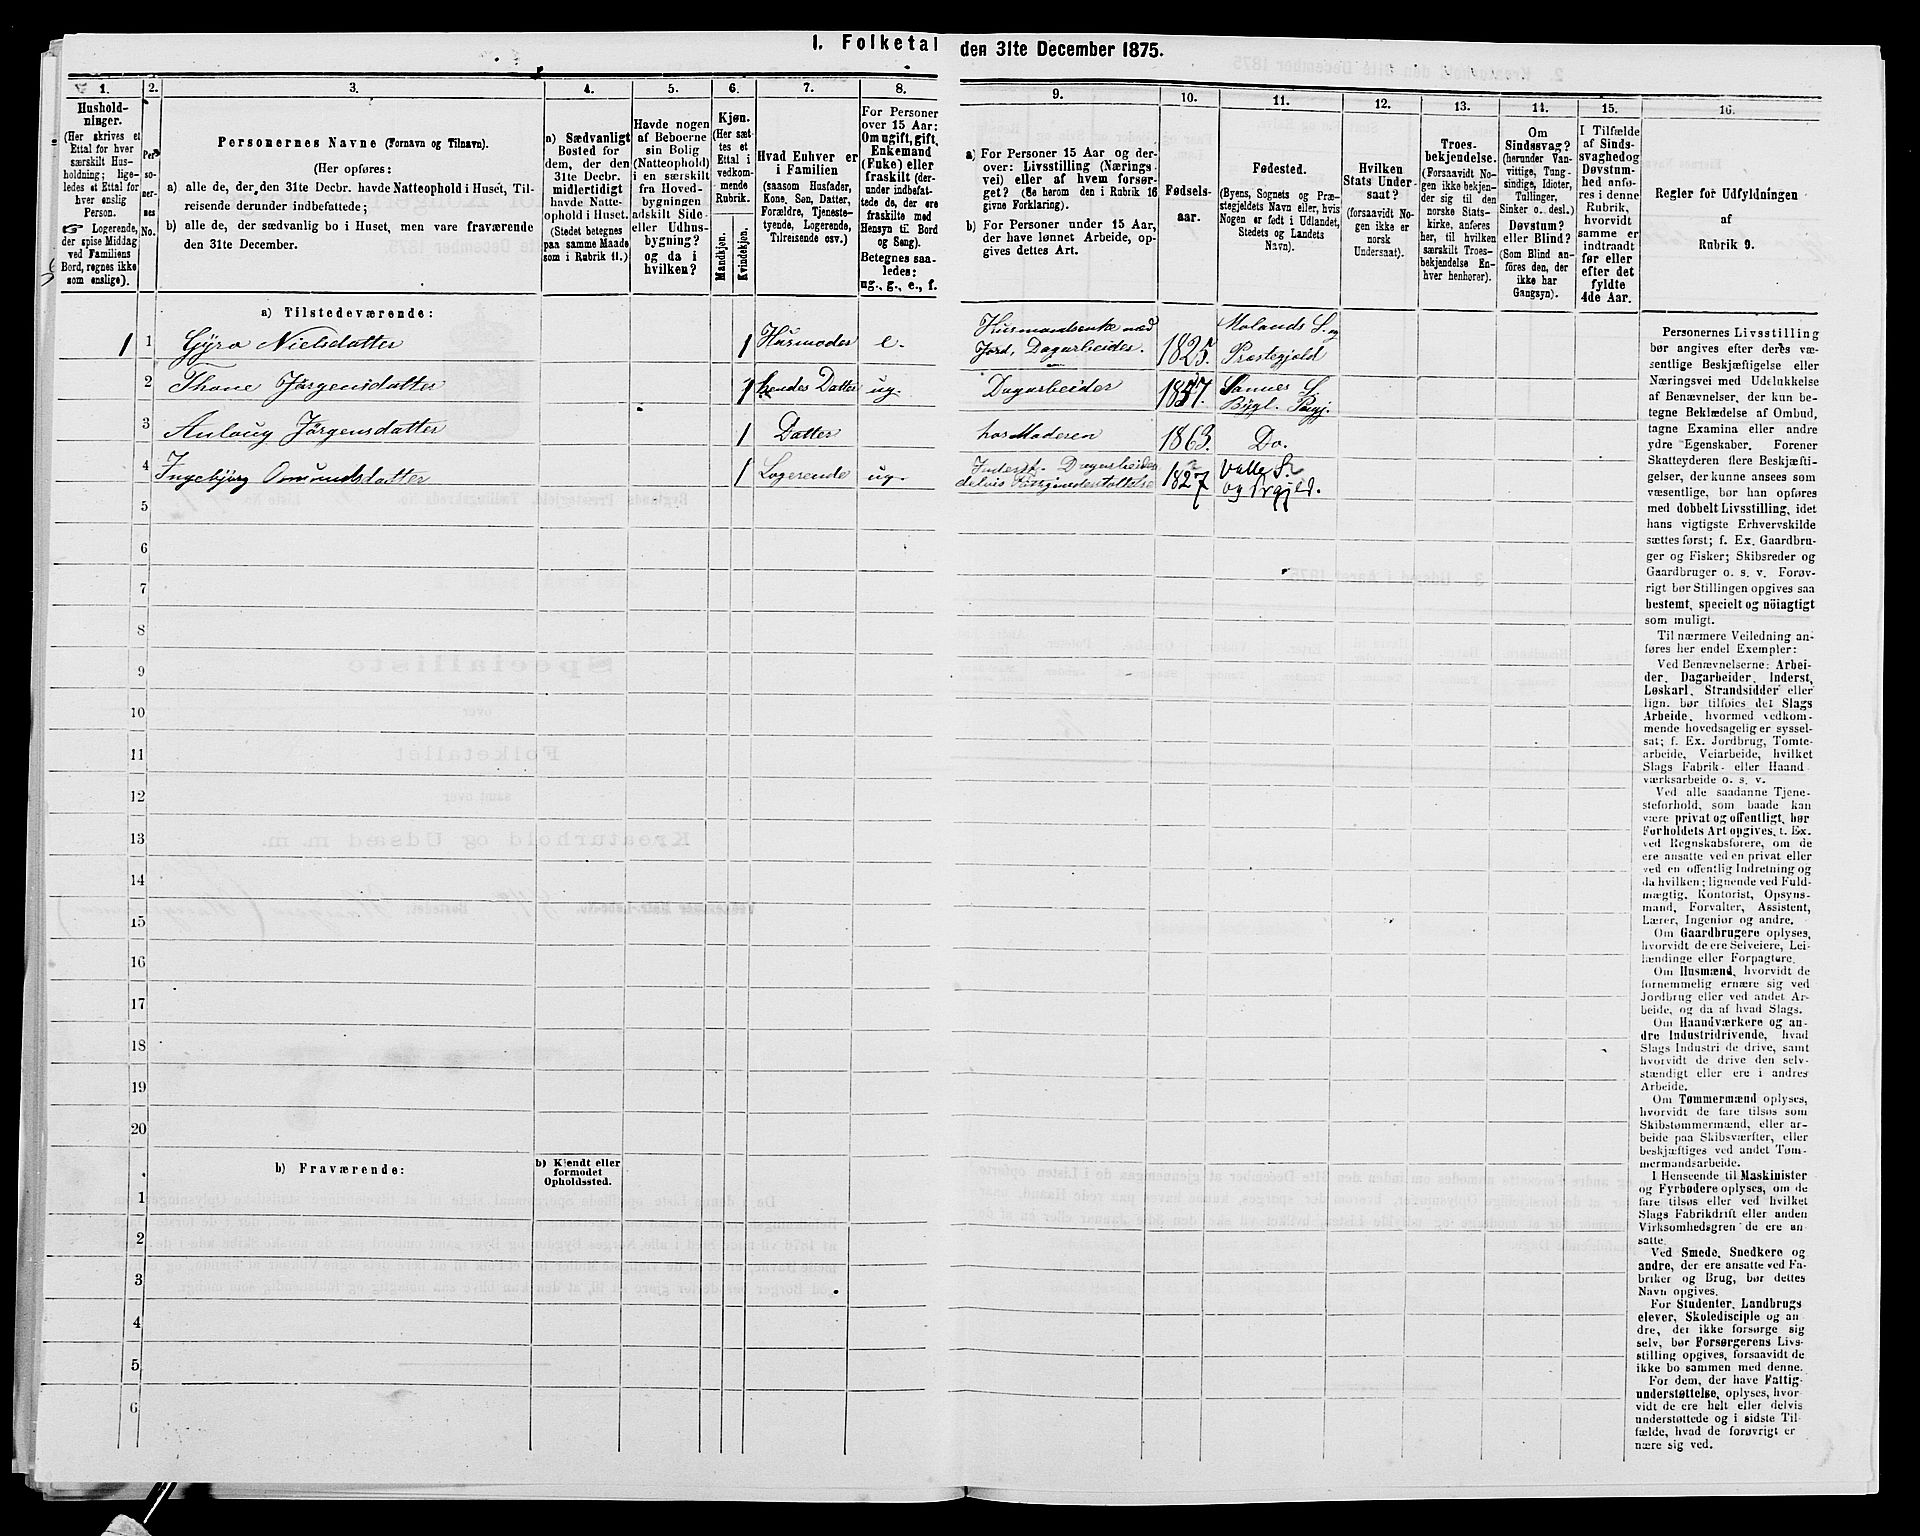 1. Folketal den 31te December 1875.
1.
2.
3.
4.
5.
6.
7.
8.
9.
10.
11.
12.
13.
14.
15.
16.
Hushold-
ninger.
(Her skrives et
Ettal for hver
særskilt Hus-
holdning; lige-
ledes et Ettal for
hver enslig
Person.
☞ Logerende,
der spise Middag
ved Familiens
Bord, regnes ikke
som enslige).
Per-
so-
ner-
nes
No.
Personernes Navne (Fornavn og Tilnavn).
(Her opføres:
a) alle de, der den 31te Decbr. havde Natteophold i Huset, Til-
reisende derunder indbefattede;
b) alle de, der sædvanlig bo i Huset, men vare fraværende
den 31te December.
a) Sædvanligt
Bosted for
dem, der den
31te Decbr.
midlertidigt
havde Natte-
ophold i Huset.
(Stedet betegnes
paa samme Maade
som i Rubrik 11.)
Havde nogen
af Beboerne
sin Bolig
(Natteophold)
i en særskilt
fra Hoved-
bygningen
adskilt Side-
eller Udhus-
bygning?
og da i
hvilken?
Kjøn.
(Her sæt-
tes et
Ettal i
vedkom-
mende
Rubrik.
Mandkjøn.
Kvindekjøn.
Hvad Enhver er
i Familien
(saasom Husfader,
Kone, Søn, Datter,
Forældre, Tjeneste-
tyende, Logerende,
Tilreisende osv.)
For Personer
over 15 Aar:
Om ugift, gift,
Enkemand
(Enke) eller
fraskilt (der-
under indbefat-
tede de, der ere
fraskilte med
Hensyn til Bord
og Seng).
Betegnes saa-
ledes:
ug., g., e., f.
a) For Personer 15 Aar og der-
over: Livsstilling (Nærings-
vei) eller af hvem forsør-
get? (Se herom den i Rubrik 16
givne Forklaring).
b) For Personer under 15 Aar,
der have lønnet Arbeide, op-
gives dettes Art.
Fødsels-
aar.
Fødested.
(Byens, Sognets og Præ-
stegjeldets Navn eller, hvis
Nogen er født i Udlandet,
Stedets og Landets
Navn).
Hvilken
Stats Under-
saat?
(forsaavidt No-
gen ikke er
norsk
Undersaat).
Troes-
bekjendelse.
(Forsaavidt No-
gen ikke bekjen-
der sig til den
norske Stats-
kirke, anføres
her, til hvilken
særskilt Troes-
bekjendelse En-
hver henhører).
Om
Sindssvag?
(herunder Van-
vittige, Tung-
sindige, Idioter,
Tullinger,
Sinker o. desl.)
Døvstum?
eller Blind?
(Som Blind an-
føres den, der
ikke har
Gangsyn).
I Tilfælde
af Sinds-
svaghed og
Døvstum-
hed anfø-
res i denne
Rubrik,
hvorvidt
samme er
indtraadt
før eller
efter det
fyldte
4de Aar.
Regler for Udfyldningen
af
Rubrik 9.
a) Tilstedeværende:
1 1 Gyro Nielsdatter 1 Husmoder e. Husmandsenke med Jord, Dagarbeider. 1825. Molands S. og Præstegjeld
2 Thone Jørgensdatter 1 hendes Datter ug. Dagarbeider 1857. Sannes S. Bygl. Prgj.
3 Anlaug Jørgensdatter 1 Datter hos Moderen 1863. Do.
4 Ingebjørg Omundsdatter 1 Logerende ug. Inderst. Dagarbeider delvis 1827 Valle S. og Prgjeld.
5
6
7
8
9
10
11
12
13
14
15
16
17
18
19
20
b) Fraværende:
b) Kjendt eller
formodet
Opholdssted.
1
2
3
4
5
6
Personernes Livsstilling
bør angives efter deres væ-
sentlige Beskjæftigelse eller
Næringsvei med Udelukkelse
af Benævnelser, der kun be-
tegne Beklædelse af Ombud,
tagne Examina eller andre
ydre Egenskaber. Forener
Skatteyderen flere Beskjæfti-
gelser, der kunne ansees som
væsentlige, bør han opføres
med dobbelt Livsstilling, idet
hans vigtigste Erhvervskilde
sættes først; f. Ex. Gaardbru-
ger og Fisker; Skibsreder og
Gaardbruger o. s. v. Forøv-
rigt bør Stillingen opgives saa
bestemt, specielt og nöiagtigt
som muligt.
Til nærmere Veiledning an-
føres her endel Exempler:
Ved Benævnelserne: Arbei-
der, Dagarbeider, Inderst,
Løskarl, Strandsidder eller
lign. bør tilføies det Slags
Arbeide, hvormed vedkom-
mende hovedsagelig er syssel-
sat; f. Ex. Jordbrug, Tomte-
arbeide, Veiarbeide, hvilket
Slags Fabrik- eller Haand
værksarbeide o. s. v.
Ved alle saadanne Tjene-
steforhold, som baade kan
være privat og offentligt, bør
Forholdets Art opgives, t. Ex.
ved Regnskabsførere, om de
ere ansatte ved en privat eller
ved en offentlig Indretning og
da hvilken; lignende ved Fuld-
mægtig, Kontorist, Opsyns-
mand, Forvalter, Assistent,
Lærer, Ingeniør og andre.
Om Gaardbrugere oplyses,
hvorvidt de ere Selveiere, Lei-
lændinge eller Forpagtere.
Om Husmænd, hvorvidt de
fornemmelig ernære sig ved
Jordbrug eller ved andet Ar-
beide, og da af hvad Slags.
Om Haandværkere og an-
dre Industridrivende, hvad
Slags Industri de drive, samt
hvorvidt de drive den selv-
stændigt eller ere i andres
Arbeide.
Om Tømmermænd oplyses,
hvorvidt de fare tilsøs som
Skibstømmermænd, eller ar-
beide paa Skibsværfter, eller
beskjæftiges ved andet Tøm-
mermandsarbeide.
I Henseende til Maskinister
og Fyrbødere oplyses, om de
fare tilsøs eller ved hvilket
Slags Fabrikdrift eller anden
Virksomhedsgren de ere an-
satte.
Ved Smede, Snedkere og
andre, der ere ansatte ved Fa-
briker og Brug, bør dettes
Navn opgives.
For Studenter, Landbrugs
elever, Skoledisciple og an
dre, der ikke forsørge sig
selv, bør Forsørgerens Livs-
stilling opgives, forsaavidt de
ikke bo sammen med denne.
For dem, der have Fattig-
understøttelse, oplyses, hvor-
vidt de ere helt eller delvis
understøttede og i sidste Til-
fælde, hvad de forøvrigt er
nære sig ved.